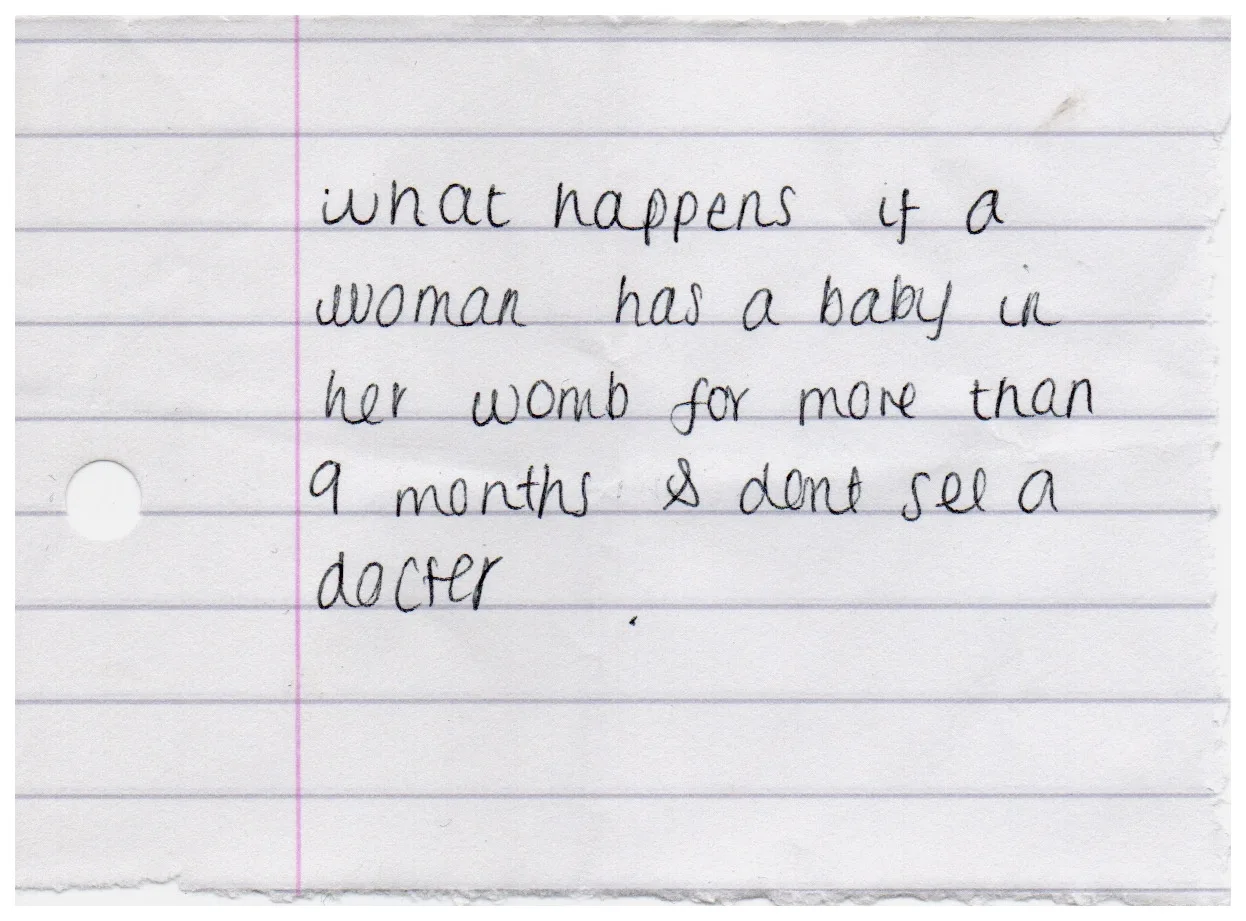 what happens if a
woman has a baby in
her womb for more than
9 months & dont see a
docter